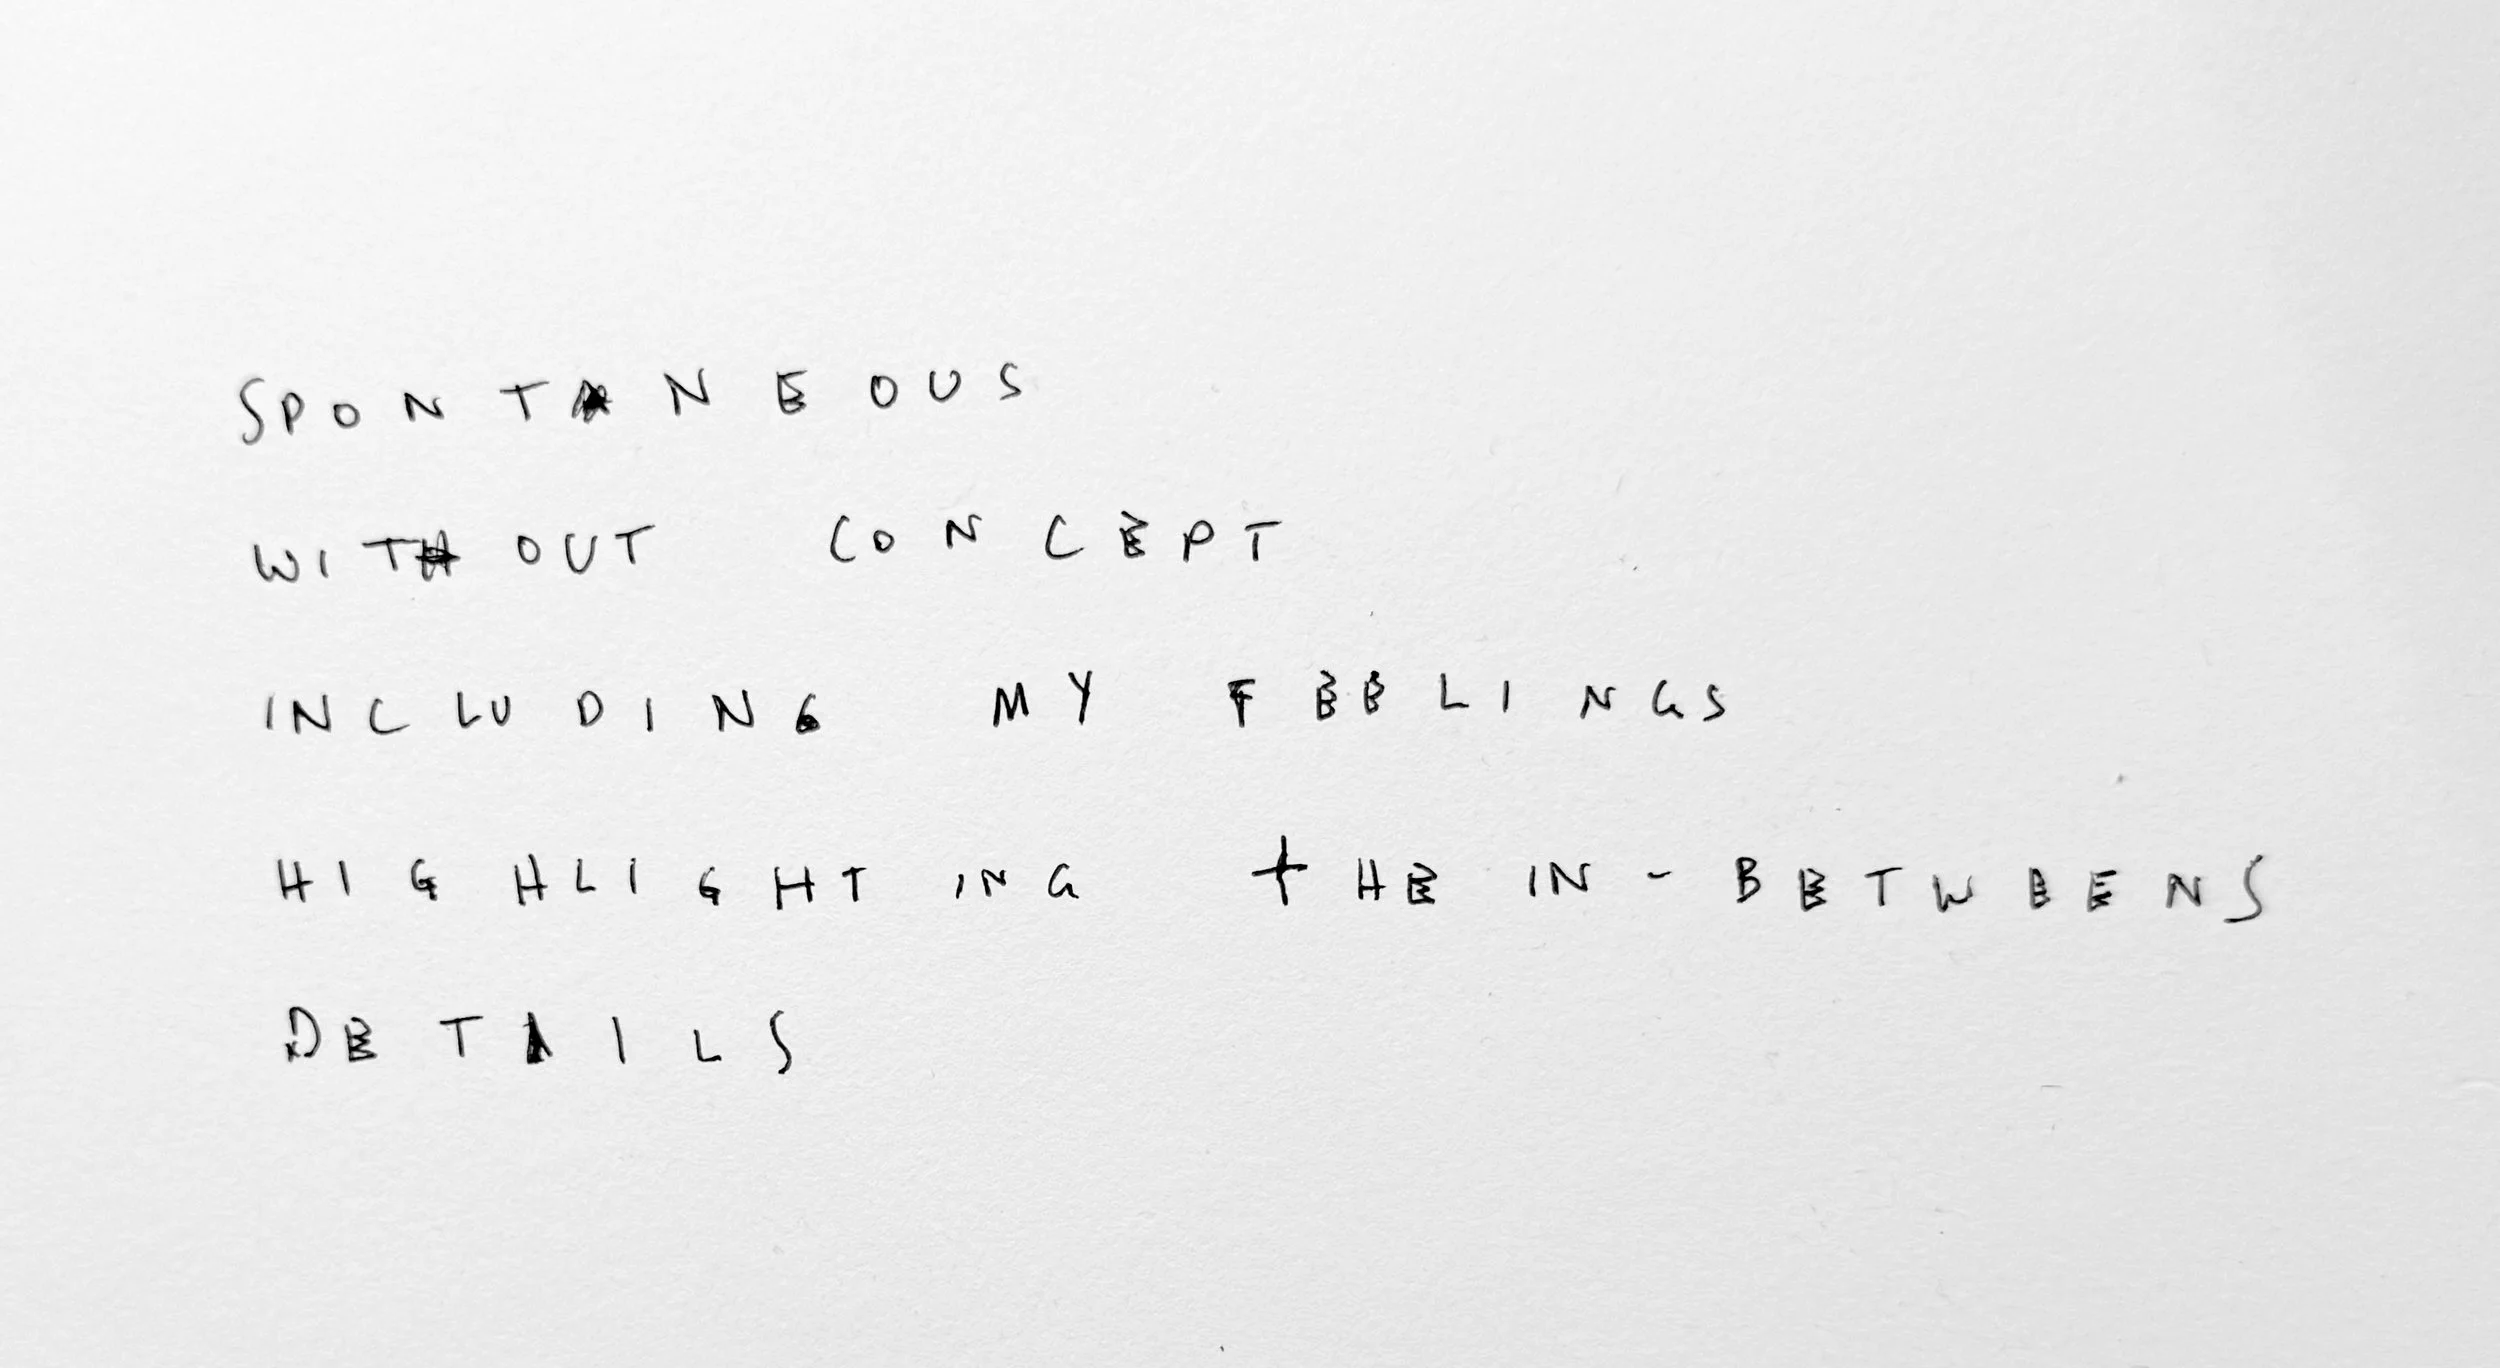 SPONTANEOUS
WITHOUT CONCEPT
INCLUDING MY FEELINGS
HIGHLIGHTING THE IN-BETWEENS
DETAILS